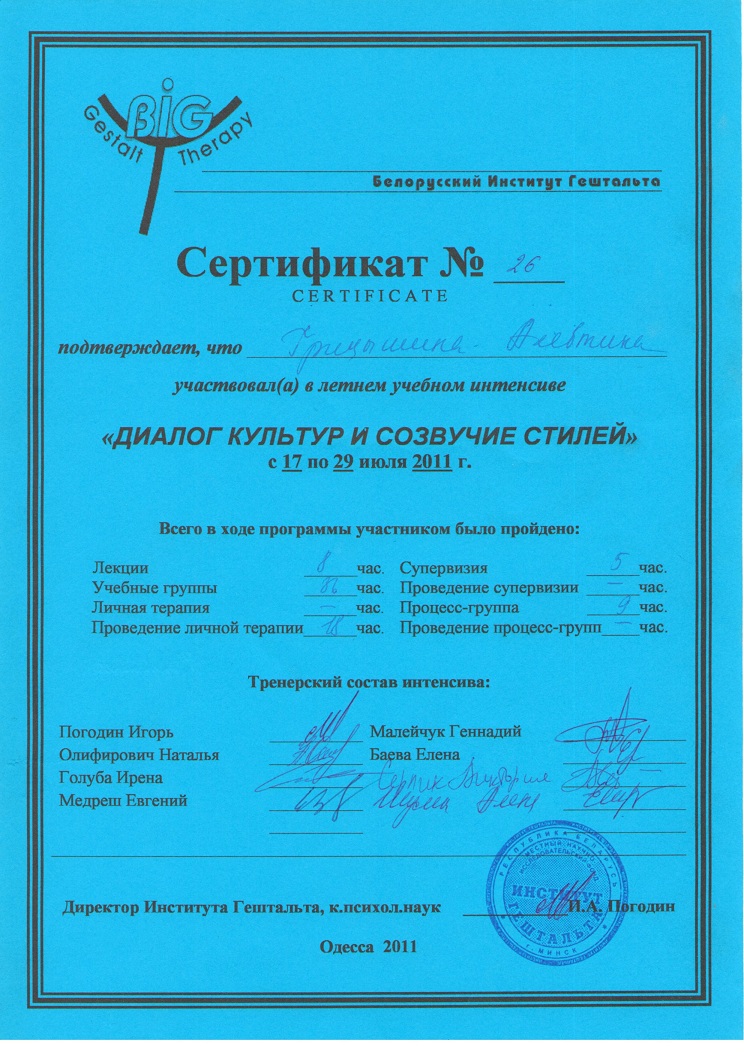 BIG
Gestalt Therapy
Белорусский Институт Гештальта
Сертификат № 26
CERTIFICATE
подтверждает, что Грицышина Алевтина
участвовал(а) в летнем учебном интенсиве
«ДИАЛОГ КУЛЬТУР И СОЗВУЧИЕ СТИЛЕЙ»
с 17 по 29 июля 2011 г.
Всего в ходе программы участником было пройдено:
Лекции 8 час. Супервизия 5 час.
Учебные группы час. Проведение супервизии — час.
Личная терапия — час. Процесс-группа 9 час.
Проведение личной терапии 18 час. Проведение процесс-групп — час.
Тренерский состав интенсива:
Погодин Игорь Малейчук Геннадий
Олифирович Наталья Баева Елена
Голуба Ирена
Медреш Евгений
РЕСПУБЛИКА БЕЛАРУСЬ
ИНСТИТУТ
ГЕШТАЛЬТА
г. МИНСК
Директор Института Гештальта, к.психол.наук И.А. Погодин
Одесса 2011